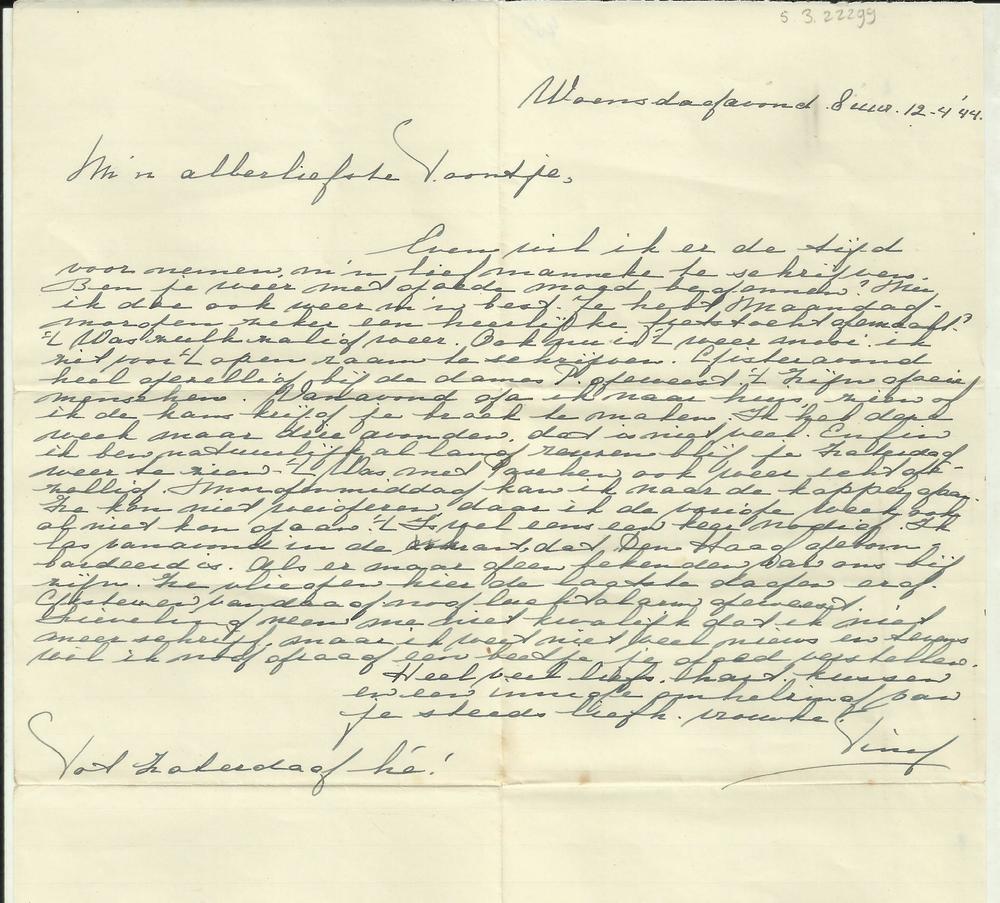 5 3. 22299
Woensdagavond 8 uur. 12-4 '44.
M'n allerliefste Toontje,
Even wil ik er de tijd
voor nemen, m'n lief manneke te schrijven.
Ben je weer met goede moed begonnen?
ik doe ook weer m'n best. Je hebt Maandag-
morgen zeker een heerlijke fietstocht gemaakt?
't Was zulk zalig weer. Ook nu is 't weer mooi. ik
zit voor 't open raam te schrijven. Gisteravond
heel gezellig bij de dames P. geweest. 't Zijn goeie
menschen. Vanavond ga ik naar huis, zien of
ik de kans krijg je broek te maken. Ik heb deze
week maar drie avonden, dat is niet veel. Enfin
ik ben natuurlijk al lang blij je Zaterdag
weer te zien. 't Was met Paschen ook weer echt ge-
zellig. Morgenmiddag kan ik naar de kapper gaan.
Ze kon niet weigeren, daar ik de vorige week ook
al niet kon gaan. 't Is wel eens een keer nodig. Ik
las vanavond in de krant, dat Den Haag gebom-
bardeerd is. Als er maar geen bekenden van ons bij
zijn. Ze vliegen hier de laatste dagen erg.
Gisteren en vandaag nog luchtalarm geweest.
Lieveling neem me niet kwalijk dat ik niet
meer schrijf, maar ik weet niet veel nieuws en tevens
wil ik nog graag een beetje je goed verstellen.
Heel veel liefs, hart. kussen
en een innige omhelzing van
je steeds liefh. vrouwke
Tiny
Tot Zaterdag hé!